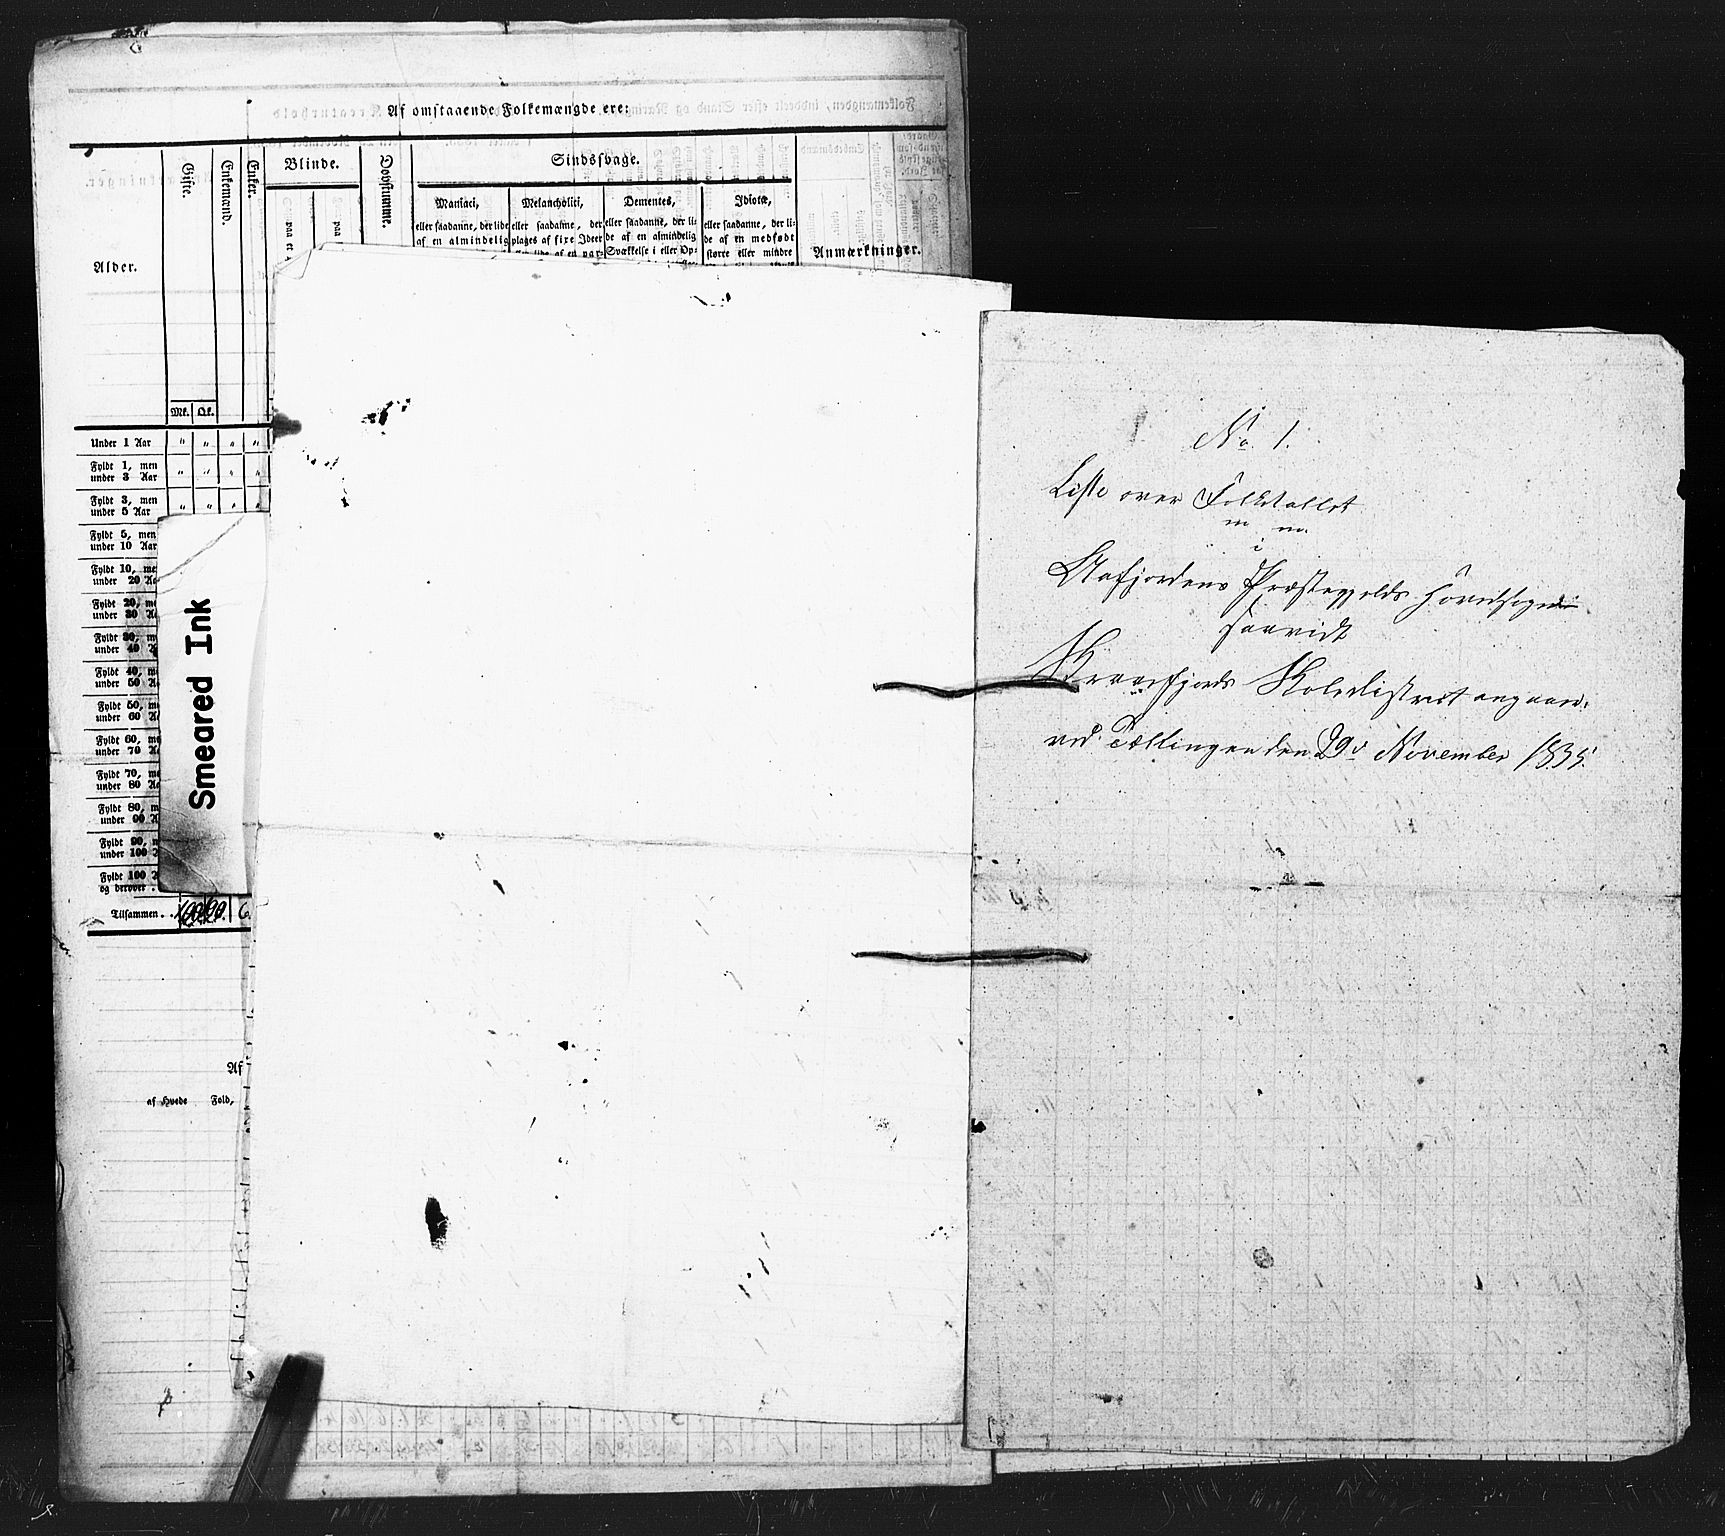 Af omstaaende Folkemængde ere:
Alder.
Gifte.
Enkemænd.
Enker.
Blinde.
Døvstumme.
Sindssvage.
Anmærkninger.
paa et
paa
Maniaci,
eller saadanne, der lide
af en almindelig
Melancholici,
eller saadanne, der
plages af fixe Ideer
Dementes,
eller saadanne, der li-
de af en almindelig
Svækkelse i eller Op-
Idiotæ,
eller saadanne, der li-
de af en medfødt
større eller mindre
Mk. Qk.
Under 1 Aar " " " "
Fyldt 1, men
under 3 Aar " " " "
Fyldt 3, men
under 5 Aar " " " "
Fyldt 5, men
under 10 Aar
Fyldt 10, me
under 20 Aa
Fyldt 20, me
under 30 Aa
Fyldt 30, me
under 40 A
Fyldt 40, me
under 50 A
Fyldt 50, me
under 60 A
Fyldt 60, me
under 70 A
Fyldt 70, me
under 80 Aa
Fyldt 80, m
under 90 A
Fyldt 90, m
under 100
Fyldt 100
og derover .
Tilsammen . .
6
Af
af Hvede Fold,
Smeared Ink
No 1.
Liste over Folketallet
m m.
i
Aafjordens Præstegjelds Hovedsogn
saavidt
Skoledistrict angaaer.
ved Tællingen den 29de November 1835.